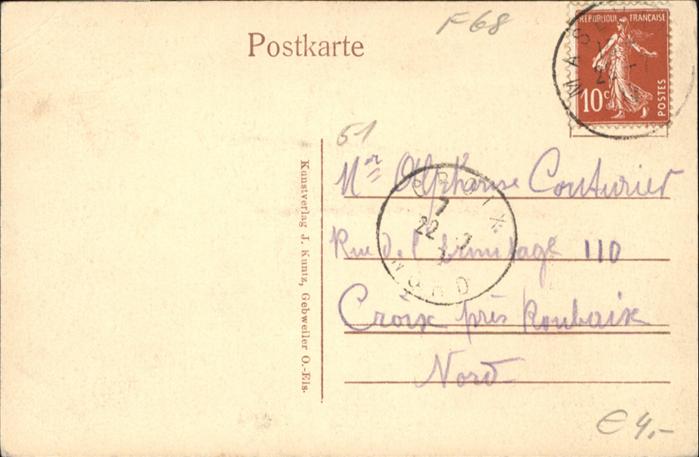 F68
Postkarte
RÉPUBLIQUE FRANÇAISE
10c
POSTES
MASE
51
Mr Alphonse Couturier
Rue de l'Ermitage 110
Croix près Roubaix
Nord
CROIX
7
22 -7
NORD
Kunstverlag J. Kuntz, Gebweiler O.-Els.
€ 4,-